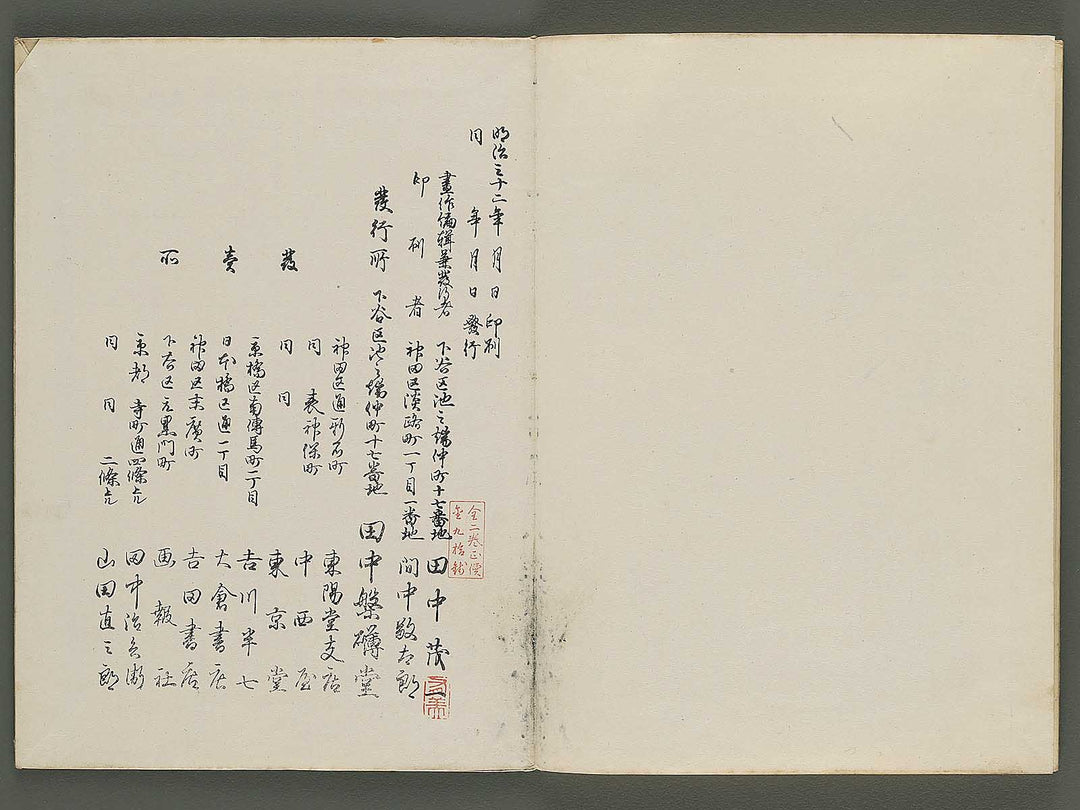 明治三十二年 月 日 印刷
同 年 月 日 發行
畫作偏輯兼發行者 下谷区池之端仲町十七番地 田中茂一
印刷者 神田区淡路町一丁目一番地 間中敬太郎
發行所 下谷区池之端仲町十七番地 田中槃礴堂
發賣所
神田区通新石町 東陽堂支店
同 表神保町 中西屋
同 同 東京堂
京橋区南傳馬町一丁目 吉川半七
日本橋区通一丁目 大倉書店
神田区末廣町 吉田書店
下谷区元黒門町 画報社
京都 寺町通四條 田中治兵衛
同 同 二條 山田直三郎
全二巻正價
金九拾錢